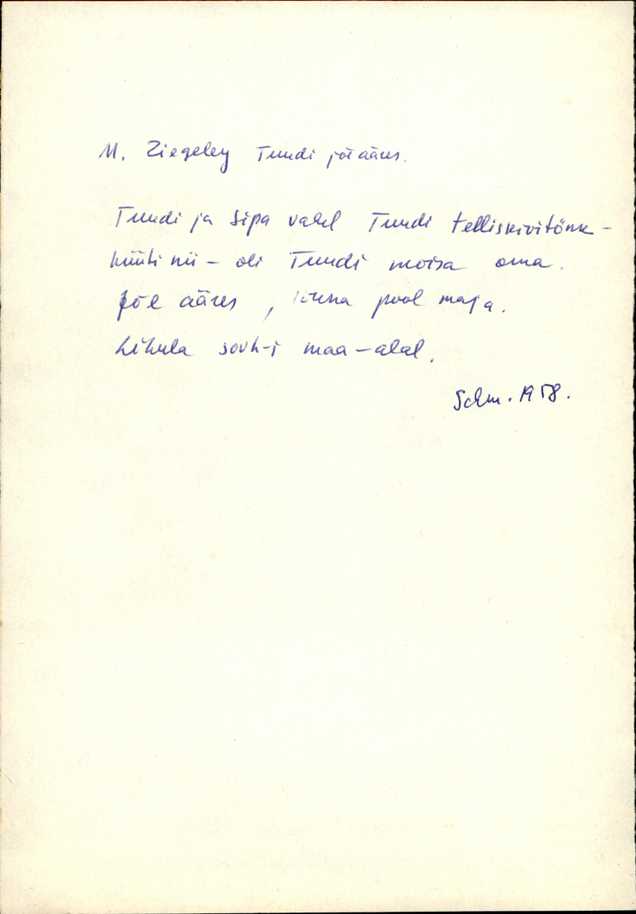 M. Ziegeley Tuudi jõe ääres.
Tuudi ja Sipa vahel Tuudi telliskivitõnk-
küüti nii - oli Tuudi moisa oma.
Jõe ääres, lõuna pool maja.
Lihula sovh-i maa-alal.
Schm. 1958.